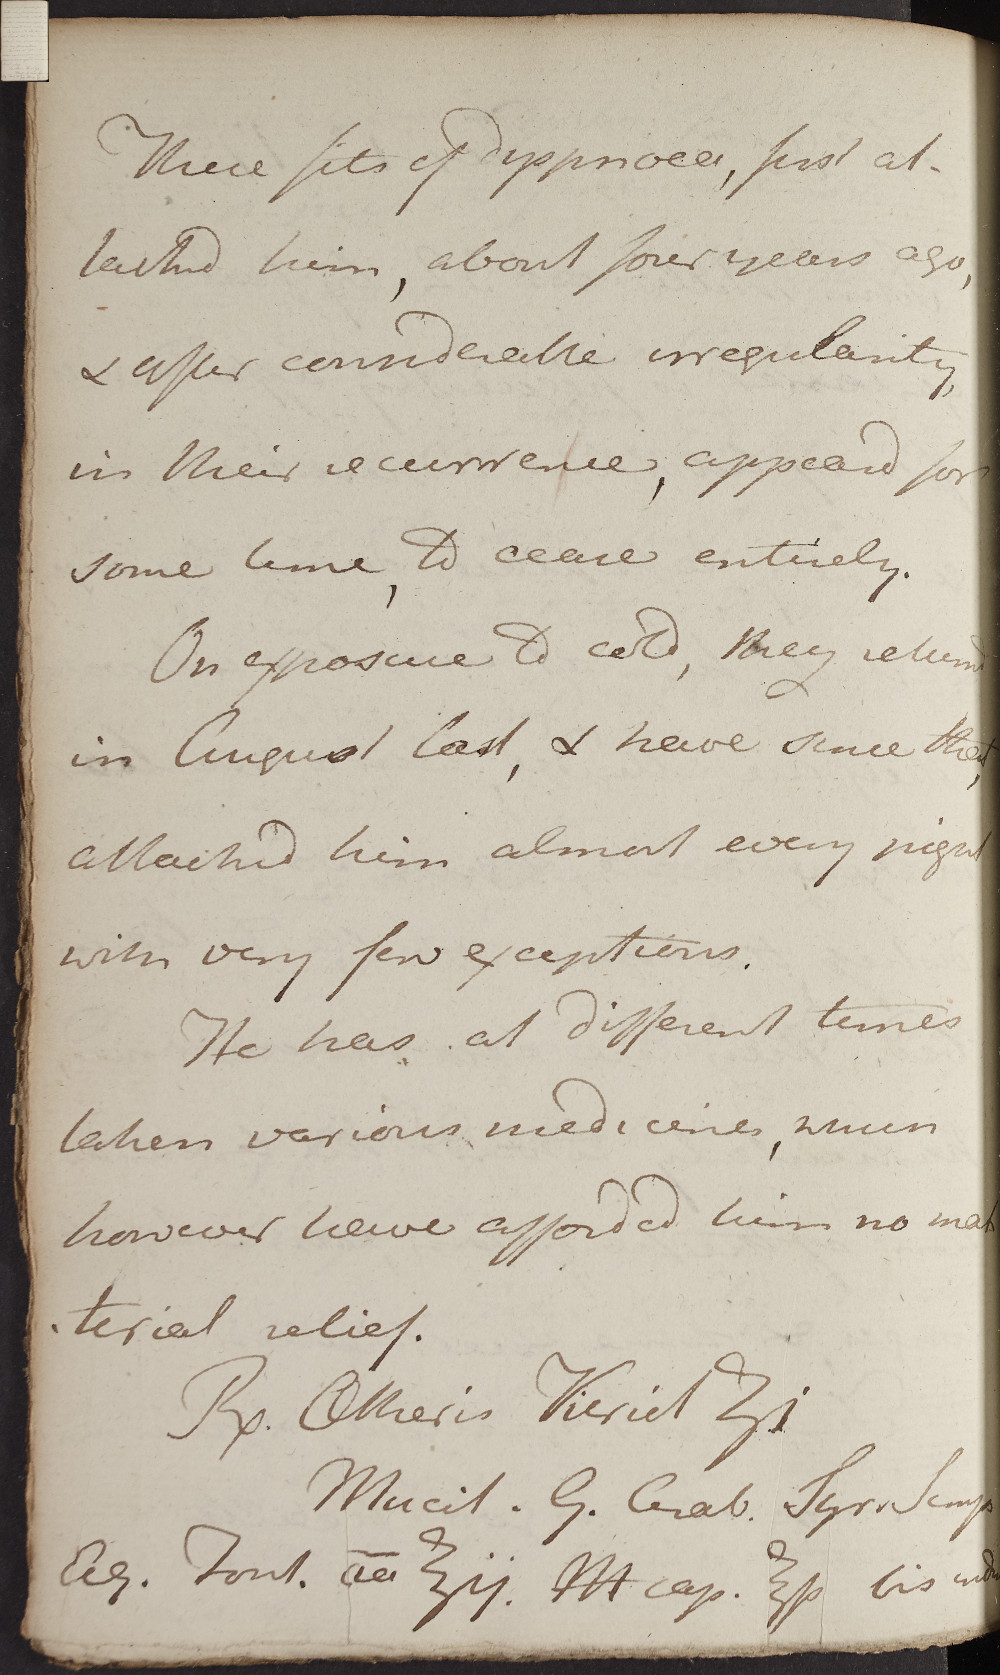 These fits of dyspnoea, first at-
tackd him, about four years ago,
& after considerable irregularity,
in their recurrence, appeard for
some time, to cease entirely.
On exposure to cold, they returnd
in August last, & have since that,
attackd him almost every night
with very few exceptions.
He has at different times
taken various medicines, which
however have afforded him no ma-
terial relief.
Rx. Ætheris Vitriol ʒi
Mucil. G. Arab. Syr. Simp
Aq. Font. aa ℥ij. M cap. ℥ß bis indies